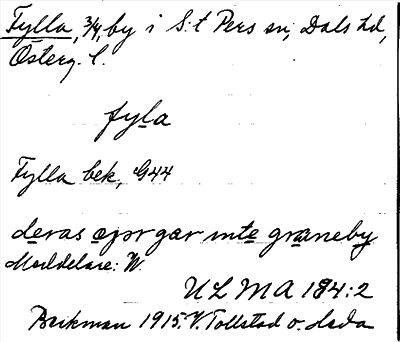 Fylla, 3/4, by i S:t Pers sn, Dals hd,
Österg. l.
fyla
Fylla bek, G44
deras gar inte graneby
Meddelare: W.
ULMA 184:2
Beckman 1915. V. Tollstad o. Dala